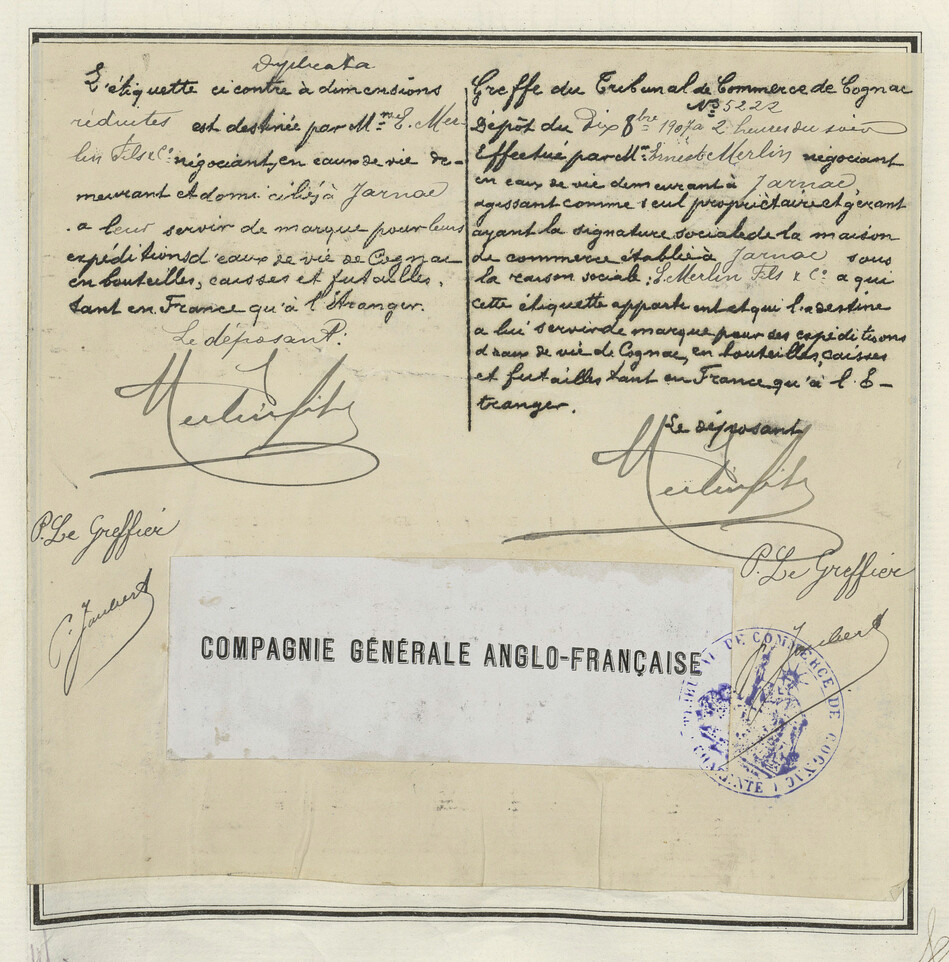 Duplicata
L'étiquette ci contre à dimensions
réduites est destinée par Mr E. Mer-
lin Fils & Cie négociant, en eaux de vie de-
meurant et domiciliés à Jarnac
a leur servir de marque pour leurs
expéditions d'eaux de vie de Cognac
en bouteilles, caisses et futailles,
tant en France qu'à l'Étranger.
Le déposant.
Merlin fils
P. Le Greffier
C. Joubert
Greffe du Tribunal de Commerce de Cognac
No 5222
Dépôt du Dix 8bre 1907 à 2 heures du soir
Effectué par Mr Ernest Merlin négociant
en eaux de vie demeurant à Jarnac
agissant comme seul propriétaire et gérant
ayant la signature sociale de la maison
de commerce établie à Jarnac sous
la raison sociale: E. Merlin Fils & Co a qui
cette étiquette appartient et qui la destine
a lui servir de marque pour ses expéditions
d'eaux de vie de Cognac, en bouteilles, caisses
et futailles tant en France qu'à l'E-
tranger.
Le déposant
Merlin fils
P. Le Greffier
Joubert
COMPAGNIE GÉNÉRALE ANGLO-FRANÇAISE
TRIBUNAL DE COMMERCE DE COGNAC
CHARENTE